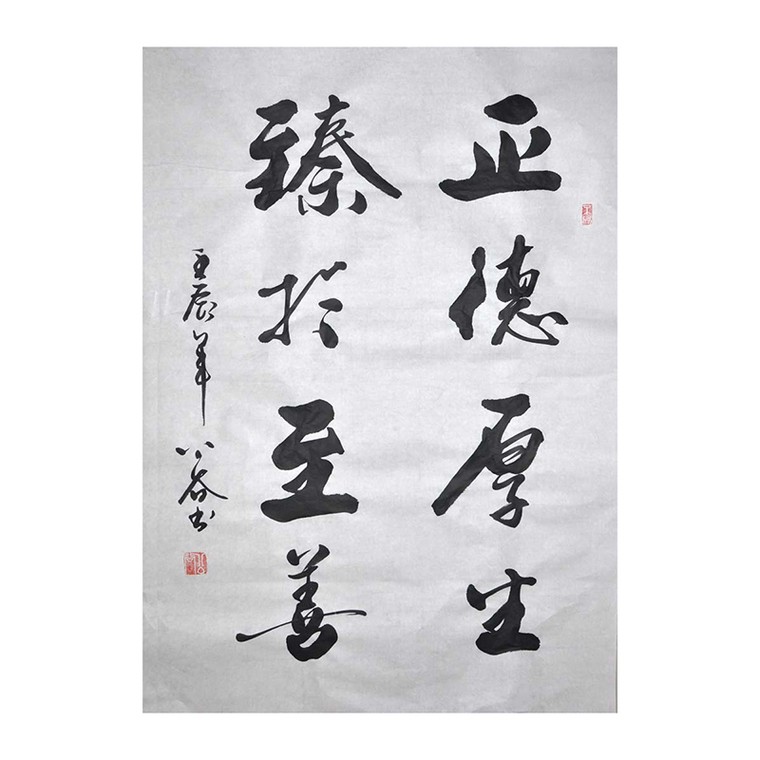 正德厚生
臻於至善
壬辰年
书